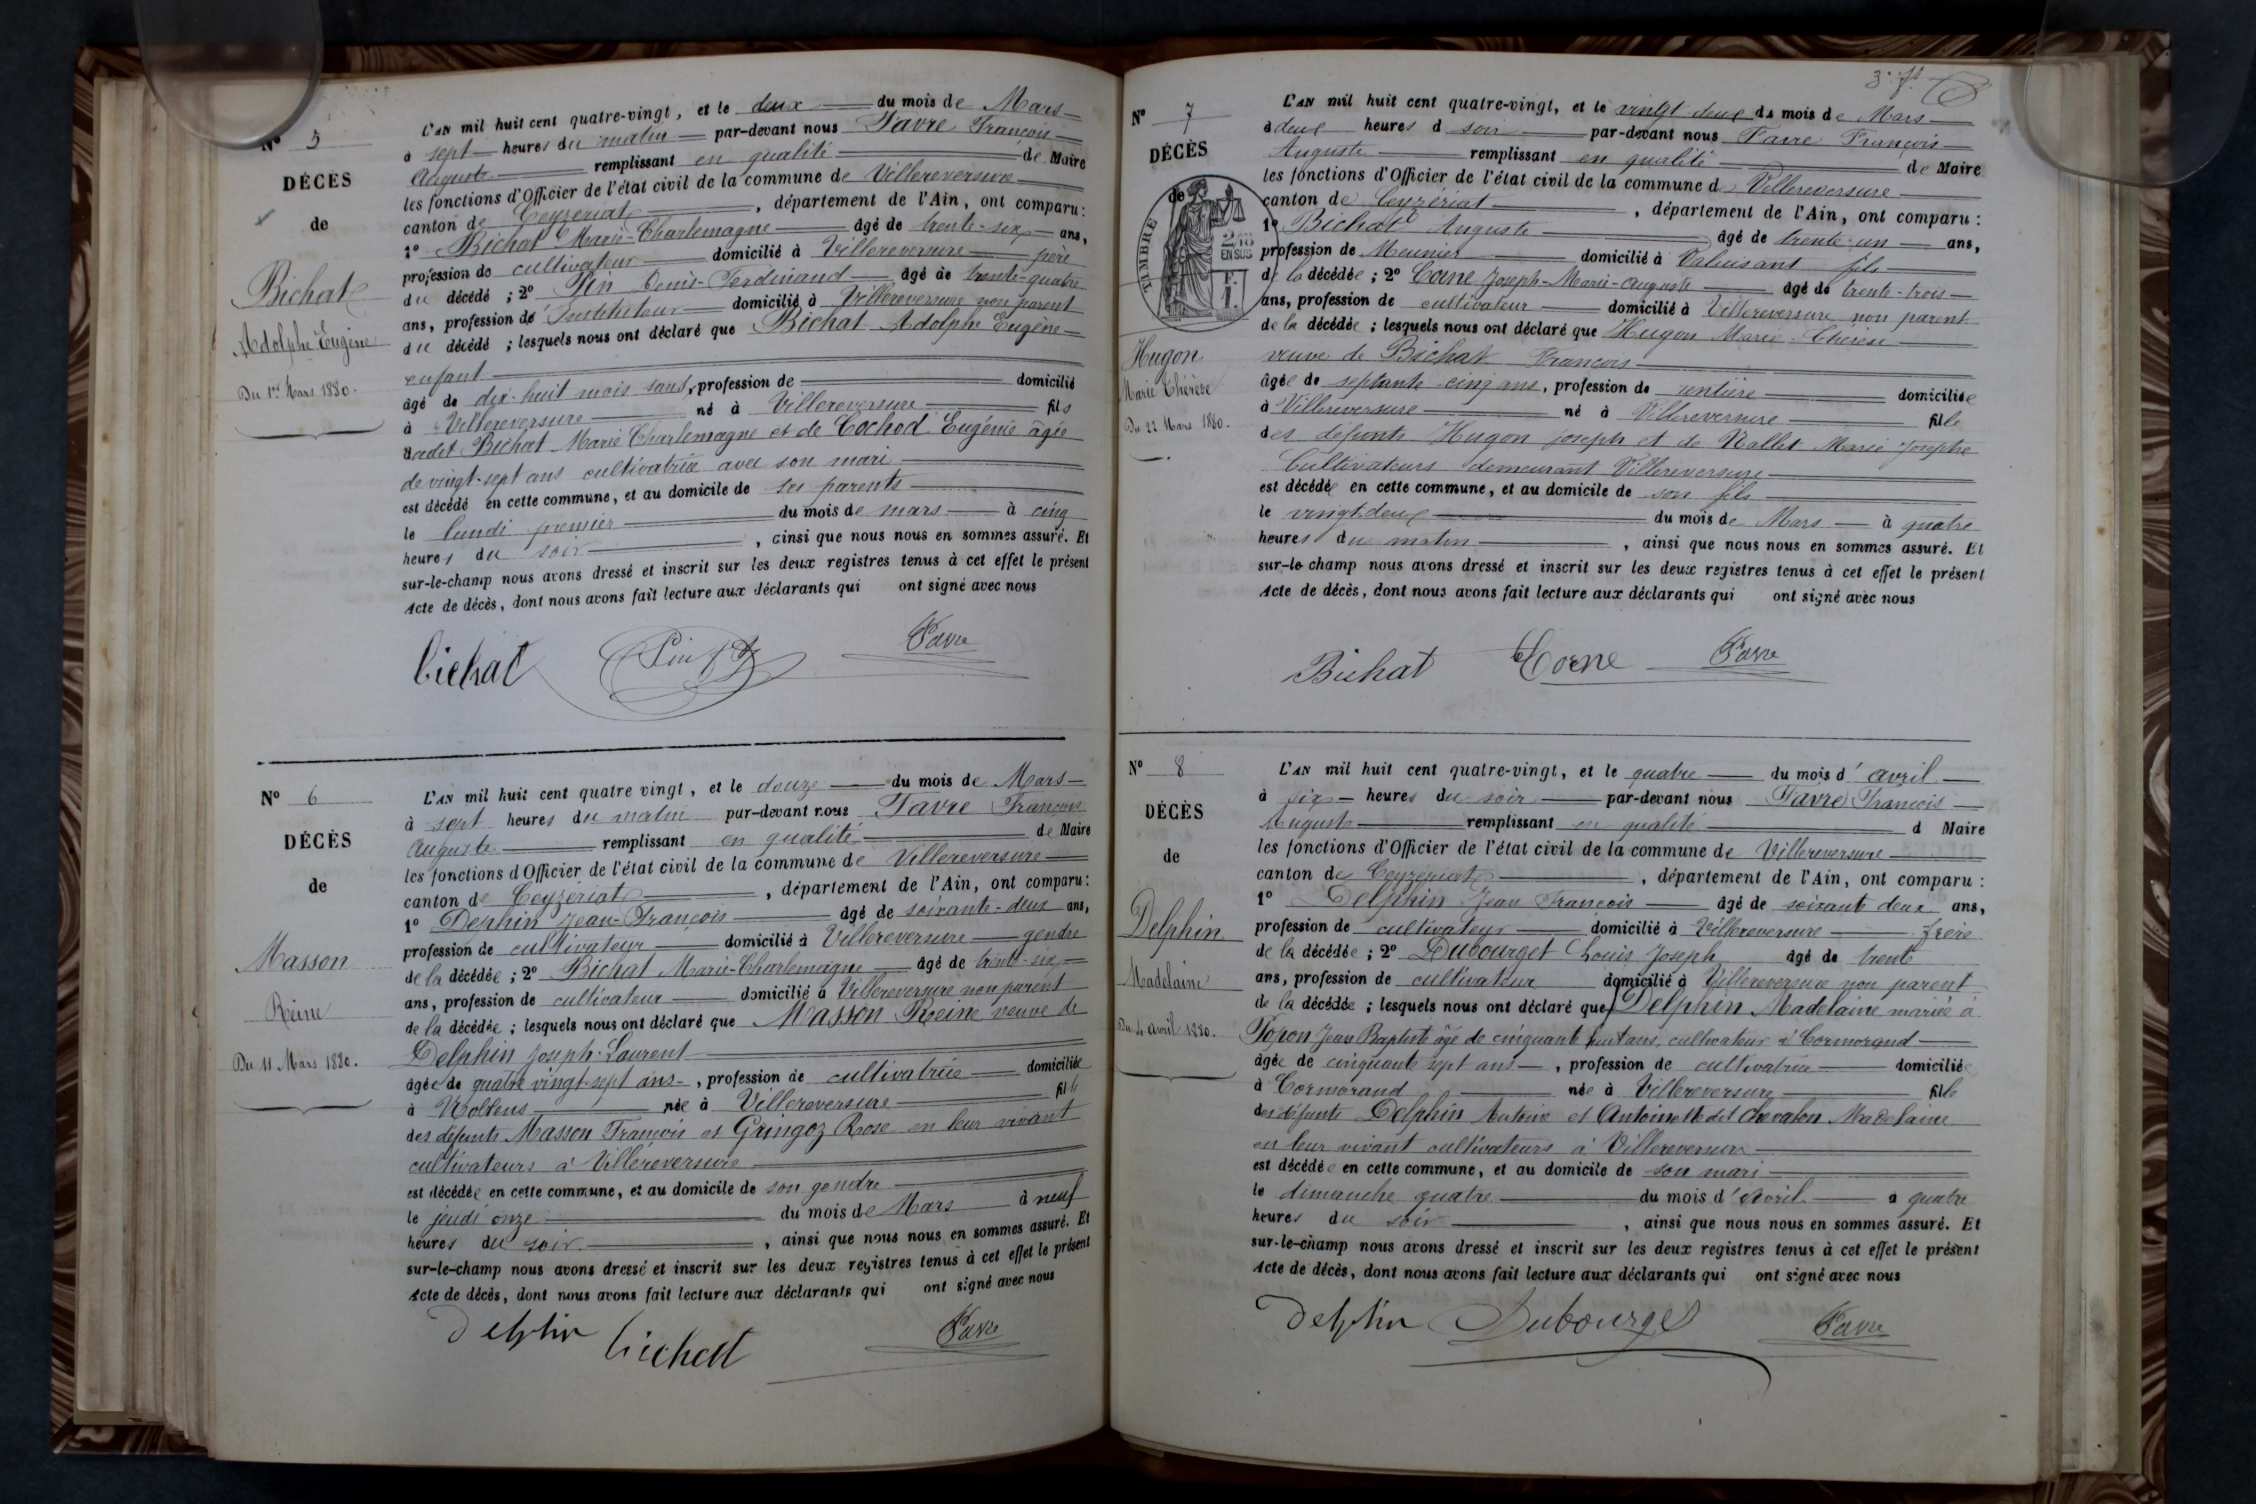 N° 5
DÉCÈS
de
Bichat
Adolphe Eugène
Du 1er Mars 1880.
L'AN mil huit cent quatre-vingt, et le deux du mois de Mars
à sept heures du matin par-devant nous Favre François
Auguste remplissant en qualité de Maire
les fonctions d'Officier de l'état civil de la commune de Villereversure
canton de Ceyzériat, département de l'Ain, ont comparu :
1° Bichat Marie-Charlemagne âgé de trente-six ans,
profession de cultivateur domicilié à Villereversure père
du décédé ; 2° Pin Denis-Ferdinand âgé de trente-quatre
ans, profession de Instituteur domicilié à Villereversure non parent
du décédé ; lesquels nous ont déclaré que Bichat Adolphe Eugène
enfant
âgé de dix-huit mois sans, profession de domicilié
à Villereversure né à Villereversure fils
dudit Bichat Marie Charlemagne et de Cochod Eugénie âgée
de vingt-sept ans cultivatrice avec son mari
est décédé en cette commune, et au domicile de ses parents
le lundi premier du mois de mars à cinq
heures du soir, ainsi que nous nous en sommes assuré. Et
sur-le-champ nous avons dressé et inscrit sur les deux registres tenus à cet effet le présent
Acte de décès, dont nous avons fait lecture aux déclarants qui ont signé avec nous
bichat Pin Favre
N° 6
DÉCÈS
de
Masson
Reine
Du 11 Mars 1880.
L'AN mil huit cent quatre vingt, et le douze du mois de Mars
à sept heures du matin par-devant nous Favre François
Auguste remplissant en qualité de Maire
les fonctions d'Officier de l'état civil de la commune de Villereversure
canton de Ceyzériat, département de l'Ain, ont comparu :
1° Delphin Jean-François âgé de soixante-deux ans,
profession de cultivateur domicilié à Villereversure gendre
de la décédée ; 2° Bichat Marie-Charlemagne âgé de trente-six
ans, profession de cultivateur domicilié à Villereversure non parent
de la décédée ; lesquels nous ont déclaré que Masson Reine veuve de
Delphin Joseph-Laurent
âgée de quatre vingt-sept ans, profession de cultivatrice domiciliée
à née à Villereversure fille
des défunts Masson François et Gringoz Rose en leur vivant
cultivateurs à Villereversure
est décédée en cette commune, et au domicile de son gendre
le jeudi onze du mois de Mars à neuf
heures du soir, ainsi que nous nous en sommes assuré. Et
sur-le-champ nous avons dressé et inscrit sur les deux registres tenus à cet effet le présent
Acte de décès, dont nous avons fait lecture aux déclarants qui ont signé avec nous
Delphin bichat Favre
N° 7
DÉCÈS
de
TIMBRE
2/10
EN SUS
Hugon
Marie Thérèse
Du 22 Mars 1880.
L'AN mil huit cent quatre-vingt, et le vingt deux du mois de Mars
à deux heures d soir par-devant nous Favre François
Auguste remplissant en qualité de Maire
les fonctions d'Officier de l'état civil de la commune d Villereversure
canton de Ceyzériat, département de l'Ain, ont comparu :
1° Bichat Auguste âgé de trente-un ans,
profession de Meunier domicilié à Valuisant fils
de la décédée ; 2° Corne Joseph-Marie-Auguste âgé de trente-trois
ans, profession de cultivateur domicilié à Villereversure non parent
de la décédée ; lesquels nous ont déclaré que Hugon Marie-Thérèse
veuve de Bichat François
âgée de septante-cinq ans, profession de rentière domiciliée
à Villereversure né à Villereversure fille
des défunts Hugon Joseph et de Nallet Marie Josephe
Cultivateurs demeurant Villereversure
est décédée en cette commune, et au domicile de son fils
le vingt-deux du mois de Mars à quatre
heures du matin, ainsi que nous nous en sommes assuré. Et
sur-le champ nous avons dressé et inscrit sur les deux registres tenus à cet effet le présent
Acte de décès, dont nous avons fait lecture aux déclarants qui ont signé avec nous
Bichat Corne Favre
N° 8
DÉCÈS
de
Delphin
Madelaine
Du 4 avril 1880.
L'AN mil huit cent quatre-vingt, et le quatre du mois d'avril
à six heures du soir par-devant nous Favre François
Auguste remplissant en qualité d Maire
les fonctions d'Officier de l'état civil de la commune de Villereversure
canton de Ceyzériat, département de l'Ain, ont comparu :
1° Delphin Jean François âgé de soixante deux ans,
profession de cultivateur domicilié à Villereversure frère
de la décédée ; 2° Dubourget Louis Joseph âgé de trente
ans, profession de cultivateur domicilié à Villereversure non parent
de la décédée ; lesquels nous ont déclaré que Delphin Madelaine mariée à
Jean Baptiste âgé de cinquante huit ans, cultivateur à Cormorand
âgée de cinquante sept ans, profession de cultivatrice domiciliée
à Cormorand née à Villereversure fille
des défunts Delphin Antoine et Antoinette dit Chevalon Madelaine
en leur vivant cultivateurs à Villereversure
est décédée en cette commune, et au domicile de son mari
le dimanche quatre du mois d'Avril à quatre
heures du soir, ainsi que nous nous en sommes assuré. Et
sur-le-champ nous avons dressé et inscrit sur les deux registres tenus à cet effet le présent
Acte de décès, dont nous avons fait lecture aux déclarants qui ont signé avec nous
Delphin Dubourget Favre